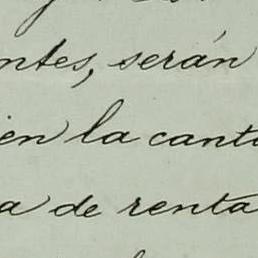 ntes, serán
en la canti
a de renta